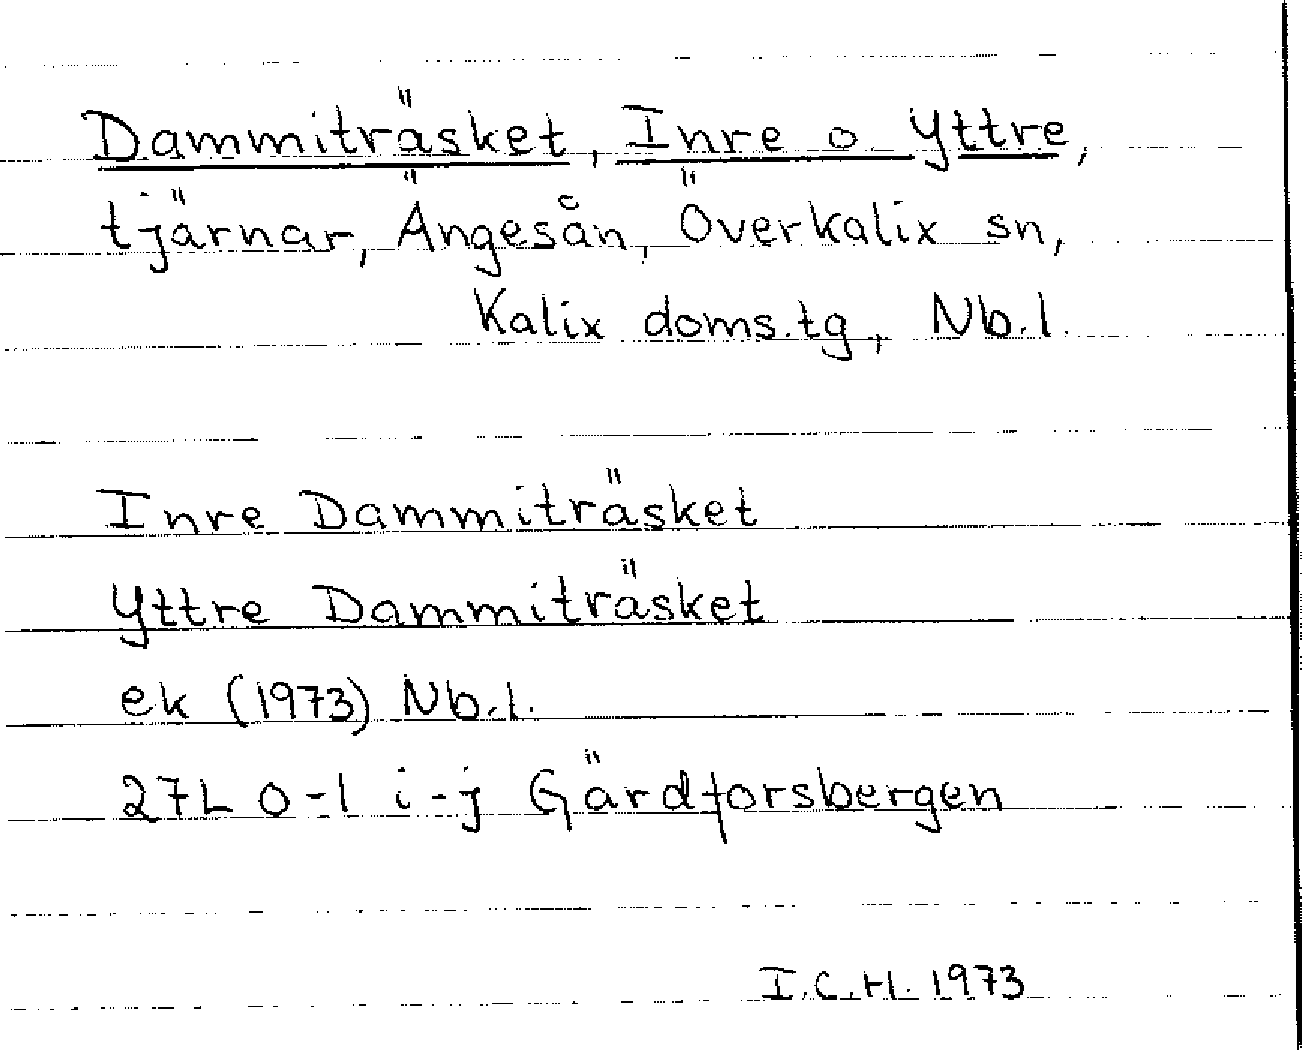 Dammiträsket, Inre o Yttre,
tjärnar, Ängesån, Överkalix sn,
Kalix doms.tg, Nb.l.
Inre Dammiträsket
Yttre Dammiträsket
ek (1973) Nb.l.
27L 0-1 i-j Gärdforsbergen
I.C.H. 1973